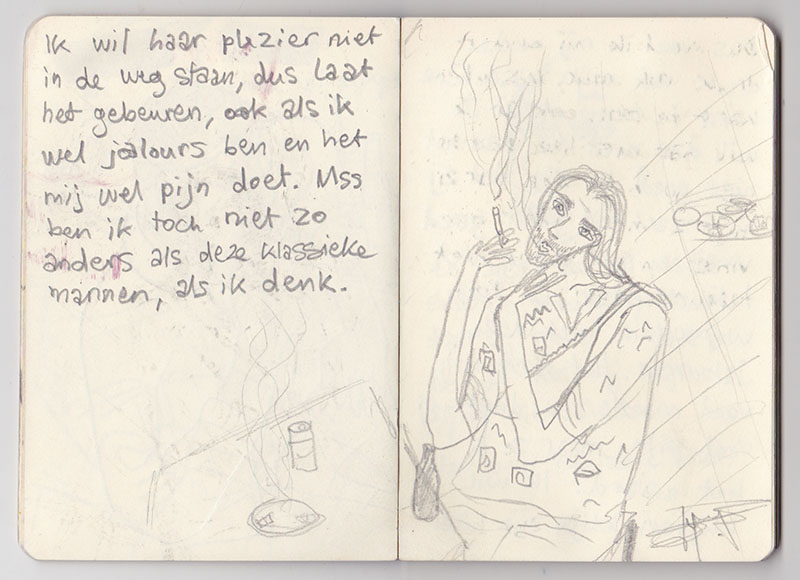 Ik wil haar plezier niet
in de weg staan, dus laat
het gebeuren, ook als ik
wel jalours ben en het
mij wel pijn doet. Mss
ben ik toch niet zo
anders als deze klassieke
mannen, als ik denk.